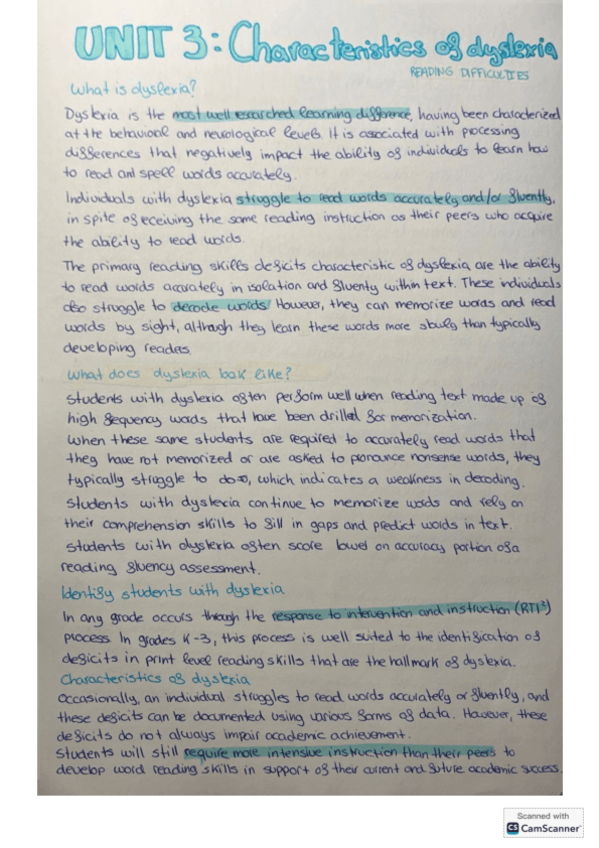 UNIT 3: Characteristics of dyslexia
READING DIFFICULTIES
What is dyslexia?
Dyslexia is the most well researched learning difference, having been characterized
at the behavioral and neurological levels. It is asociated with processing
differences that negatively impact the ability of individuals to learn how
to read and spell words accurately.
Individuals with dyslexia struggle to read words accurately and/or fluently,
in spite of receiving the same reading instruction as their peers who acquire
the ability to read words.
The primary reading skills deficits characteristic of dyslexia are the ability
to read words accurately in isolation and fluently within text. These individuals
also struggle to decode words. However, they can memorize words and read
words by sight, although they learn these words more slowly than typically
developing readers.
What does dyslexia look like?
Students with dyslexia often perform well when reading text made up of
high frequency words that have been drilled for memorization.
When these same students are required to accurately read words that
they have not memorized or are asked to pronounce nonsense words, they
typically struggle to do so, which indicates a weakness in decoding.
Students with dyslexia continue to memorize words and rely on
their comprehension skills to fill in gaps and predict words in text.
Students with dyslexia often score lowel on accuracy portion of a
reading fluency assessment.
Identify students with dyslexia
In any grade occurs through the response to intervention and instruction (RTI²)
process. In grades K-3, this process is well suited to the identification of
deficits in print level reading skills that are the hallmark of dyslexia.
Characteristics of dyslexia
Occasionally, an individual struggles to read words accurately or fluently, and
these deficits can be documented using various forms of data. However, these
deficits do not always impair academic achievement.
Students will still require more intensive instruction than their peers to
develop word reading skills in support of their current and future academic success.
Scanned with
CS CamScanner